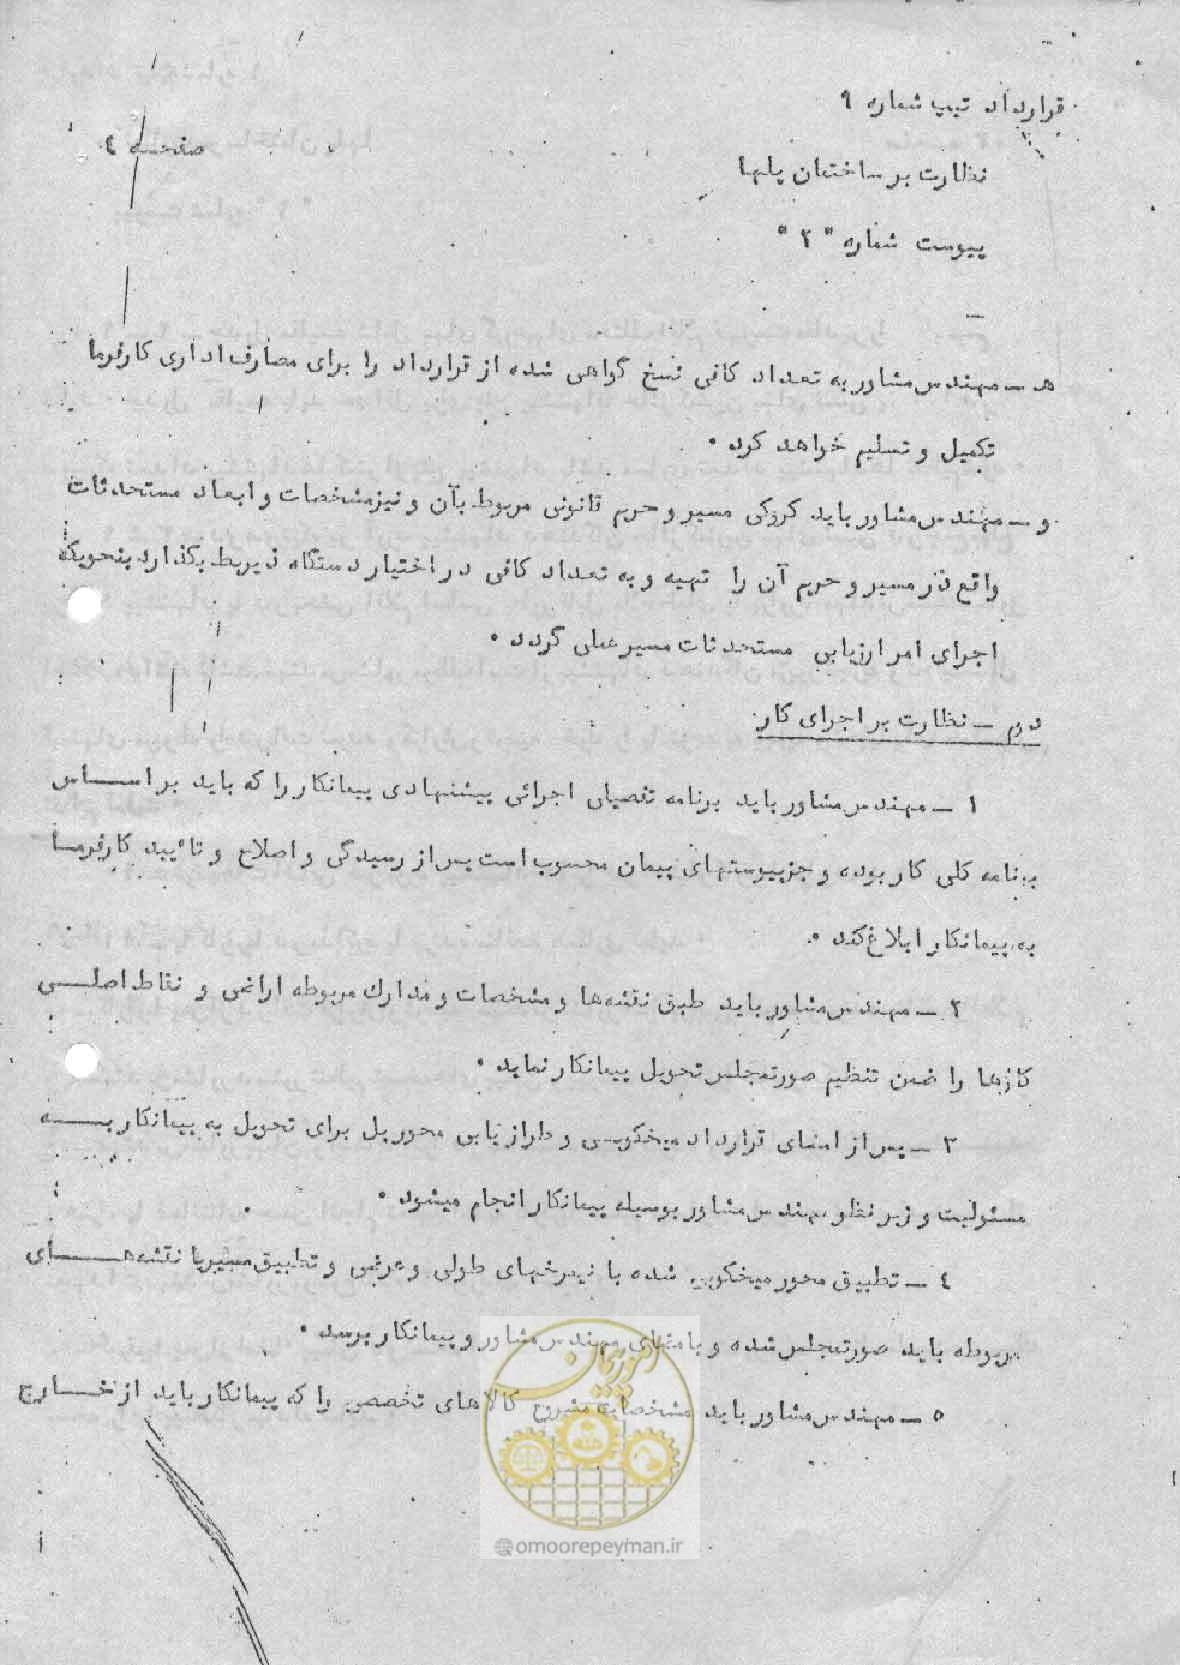 قرارداد تیپ شماره ۹
صفحه ٤
نظارت بر ساختمان پلها
پیوست شماره "۲"
هـ ـ مهندس مشاور به تعداد کافی نسخ گواهی شده از قرارداد را برای مصارف اداری کارفرما
تکمیل و تسلیم خواهد کرد .
و ـ مهندس مشاور باید کروکی مسیر و حریم قانونی مربوط بآن و نیز مشخصات و ابعاد مستحدثات
واقع در مسیر و حریم آن را تهیه و به تعداد کافی در اختیار دستگاه ذیربط بگذارد بنحویکه
اجرای امر ارزیابی مستحدثات مسیر عملی گردد .
دوم ـ نظارت بر اجرای کار
۱ ـ مهندس مشاور باید برنامه تفصیلی اجرائی پیشنهادی پیمانکار را که باید بر اساس
برنامه کلی کار بوده و جز پیوستهای پیمان محسوب است پس از رسیدگی و اصلاح و تائید کارفرما
به پیمانکار ابلاغ کند .
۲ ـ مهندس مشاور باید طبق نقشه‌ها و مشخصات و مدارک مربوطه اراضی و نقاط اصلی
کارها را ضمن تنظیم صورتمجلس تحویل پیمانکار نماید .
۳ ـ پس از امضای قرارداد میخکوبی و طرازیابی محور پل برای تحویل به پیمانکار به
مسئولیت و زیر نظر مهندس مشاور بوسیله پیمانکار انجام میشود .
٤ ـ تطبیق محور میخکوبی شده با نیمرخهای طولی و عرضی و تطبیق مسیر با نقشه‌های
مربوطه باید صورتمجلس شده و بامضای مهندس مشاور و پیمانکار برسد .
۵ ـ مهندس مشاور باید مشخصات مشروح کالاهای تخصصی را که پیمانکار باید از خارج
امور پیمان
@omoorepeyman.ir